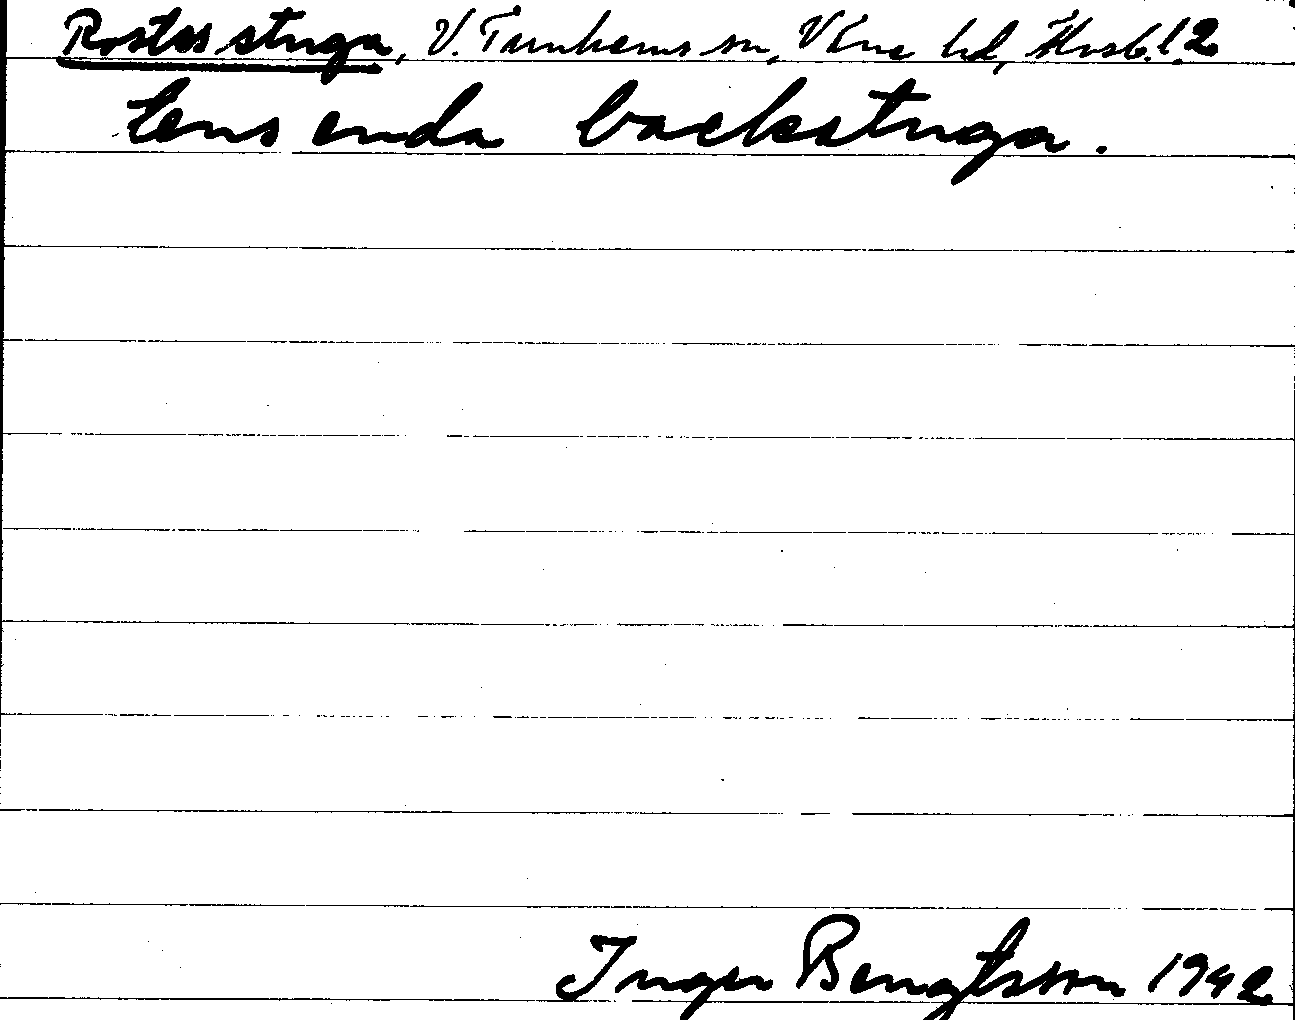 Rostes stuga, V. Tunhems sn, Väne hd, Älvsb. l. 2
Lens enda backstuga.
Inger Bengtsson 1942